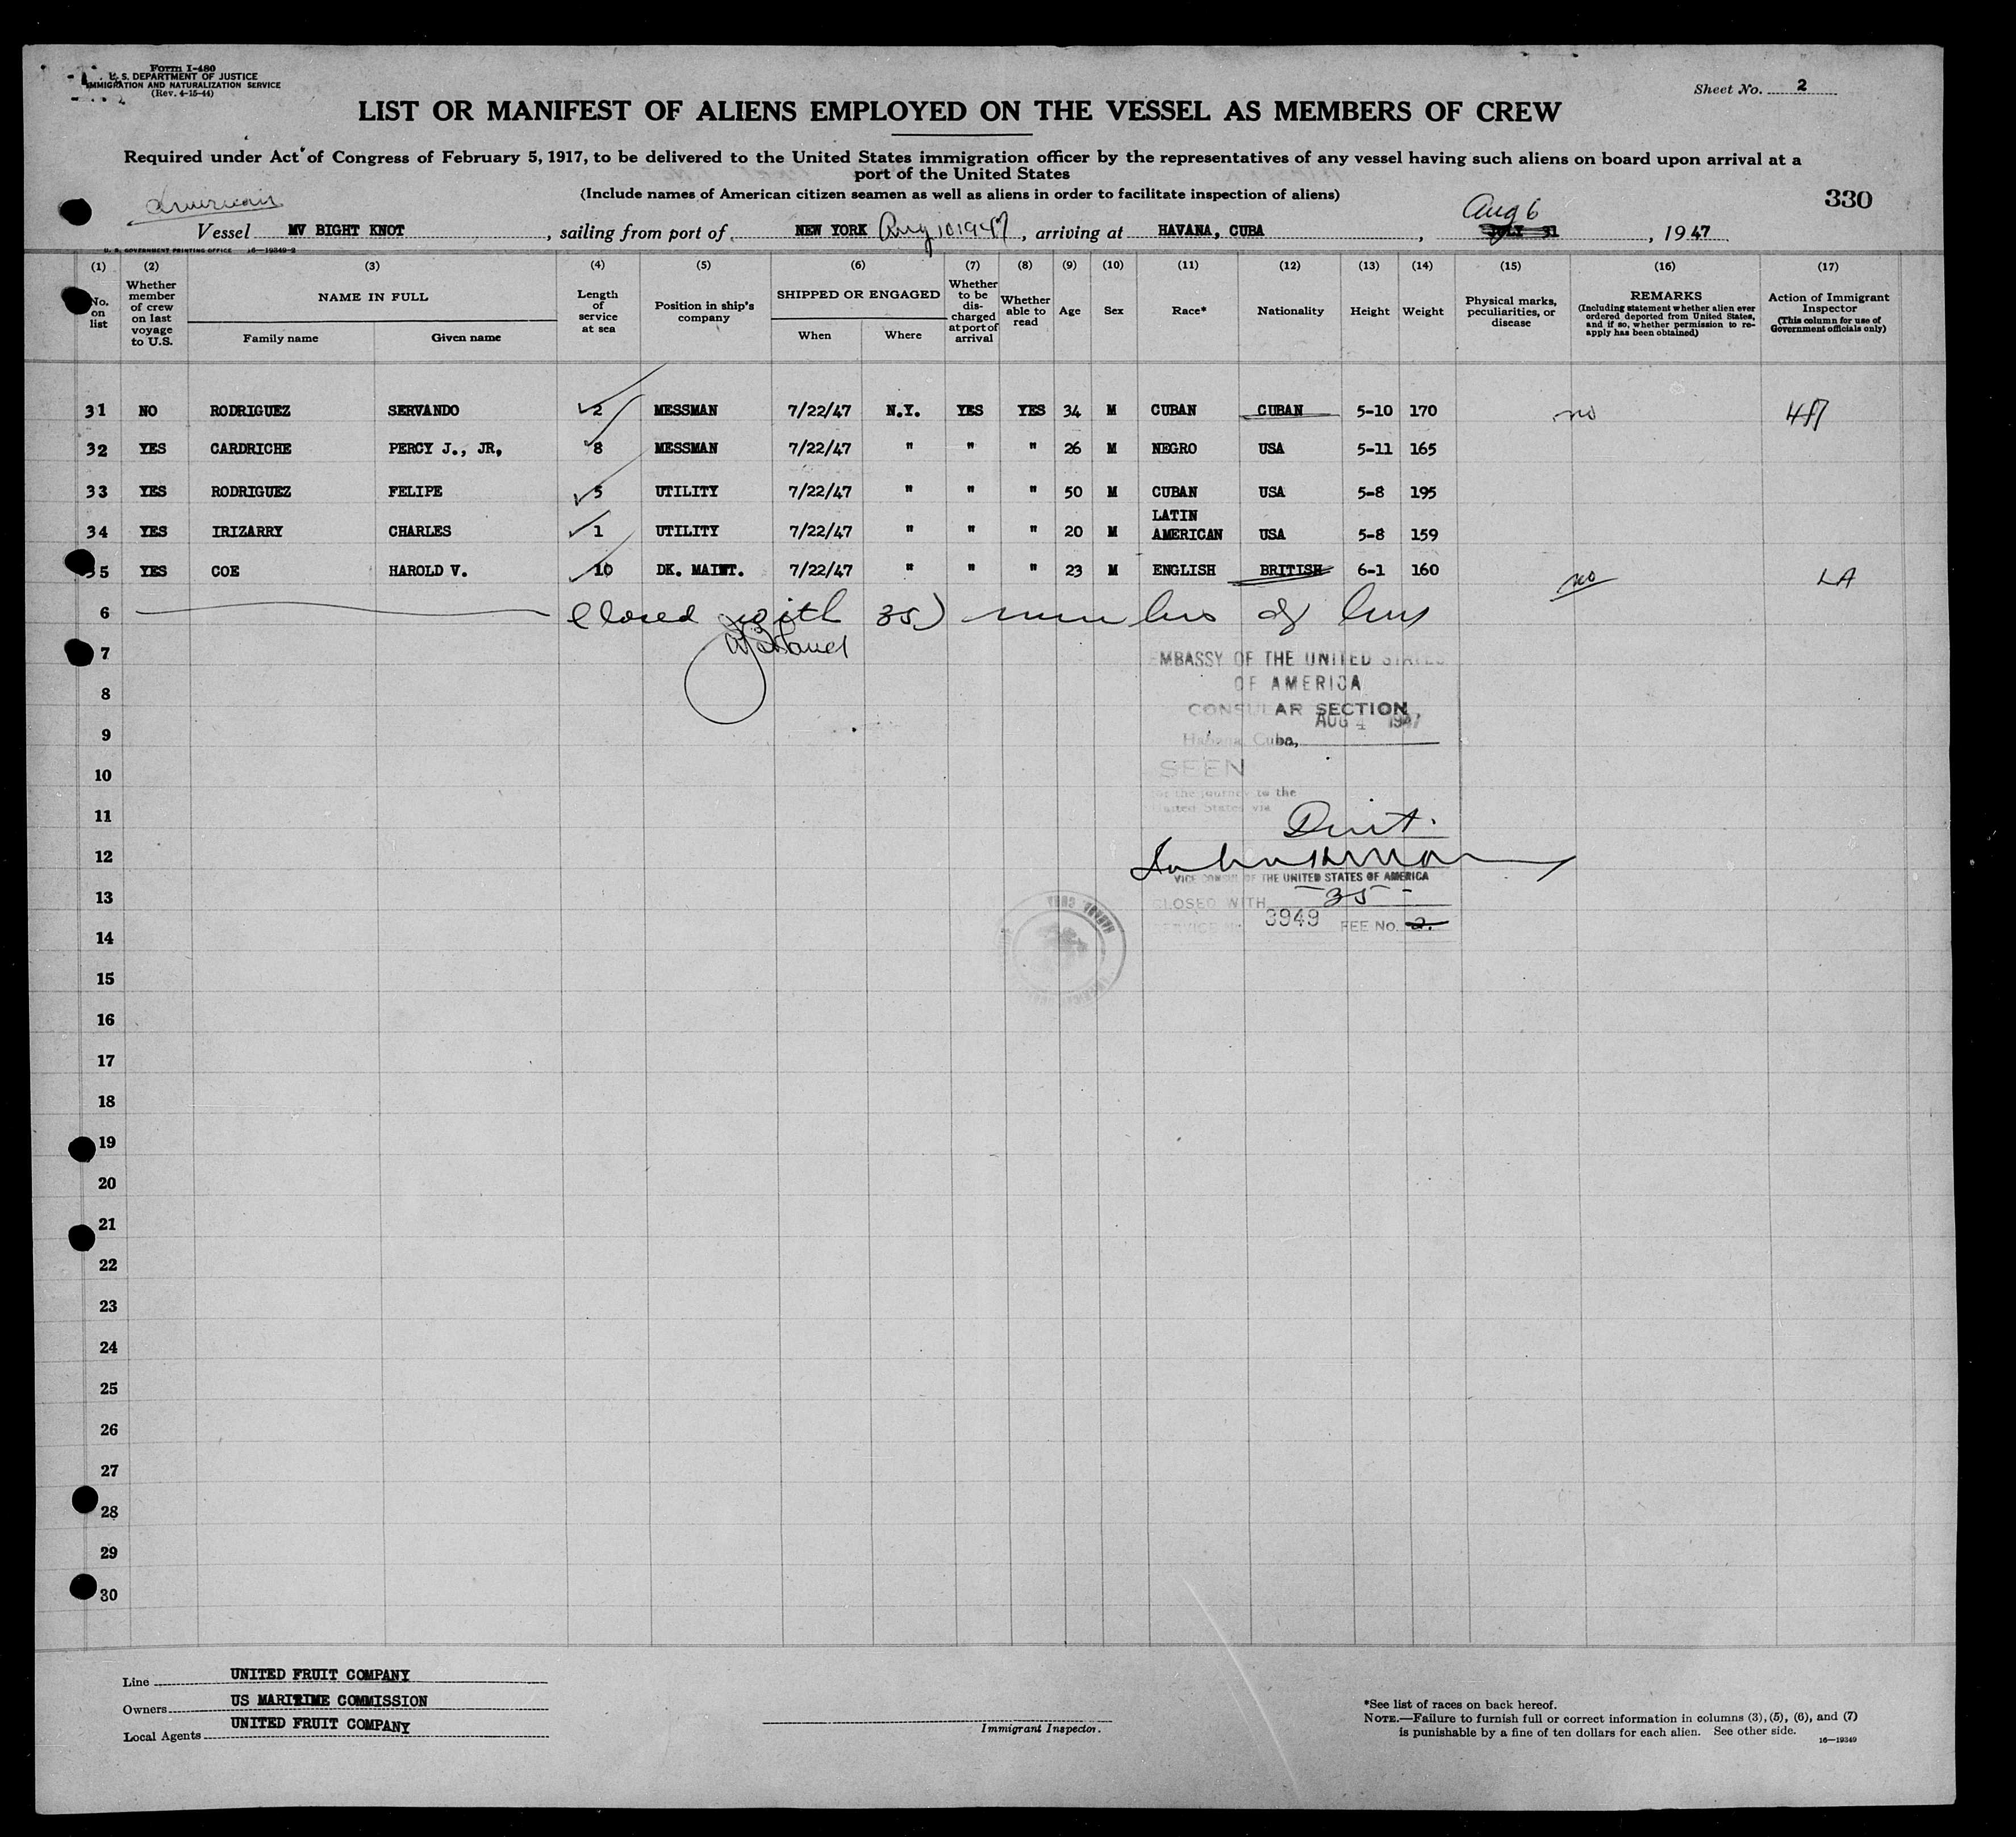 Form I-480
U. S. DEPARTMENT OF JUSTICE
IMMIGRATION AND NATURALIZATION SERVICE
(Rev. 4-15-44)
Sheet No. 2
LIST OR MANIFEST OF ALIENS EMPLOYED ON THE VESSEL AS MEMBERS OF CREW
Required under Act of Congress of February 5, 1917, to be delivered to the United States immigration officer by the representatives of any vessel having such aliens on board upon arrival at a
port of the United States
(Include names of American citizen seamen as well as aliens in order to facilitate inspection of aliens)
330
American
Aug 6
Vessel MV BIGHT KNOT, sailing from port of NEW YORK Aug 10 1947, arriving at HAVANA, CUBA, JULY 31, 1947
U. S. GOVERNMENT PRINTING OFFICE 16—19349-2
(1) (2) (3) (4) (5) (6) (7) (8) (9) (10) (11) (12) (13) (14) (15) (16) (17)
No. on list
Whether member of crew on last voyage to U.S.
NAME IN FULL
Family name Given name
Length of service at sea
Position in ship's company
SHIPPED OR ENGAGED
When Where
Whether to be discharged at port of arrival
Whether able to read
Age
Sex
Race*
Nationality
Height
Weight
Physical marks, peculiarities, or disease
REMARKS
(Including statement whether alien ever ordered deported from United States, and if so, whether permission to re-apply has been obtained)
Action of Immigrant Inspector
(This column for use of Government officials only)
31 NO RODRIGUEZ SERVANDO 2 MESSMAN 7/22/47 N.Y. YES YES 34 M CUBAN CUBAN 5-10 170 no
32 YES CARDRICHE PERCY J., JR, 8 MESSMAN 7/22/47 " " " 26 M NEGRO USA 5-11 165
33 YES RODRIGUEZ FELIPE 5 UTILITY 7/22/47 " " " 50 M CUBAN USA 5-8 195
34 YES IRIZARRY CHARLES 1 UTILITY 7/22/47 " " " 20 M LATIN AMERICAN USA 5-8 159
35 YES COE HAROLD V. 10 DK. MAINT. 7/22/47 " " " 23 M ENGLISH BRITISH 6-1 160 no LA
6 Closed with 35) members of
7
EMBASSY OF THE UNITED STATES
8
OF AMERICA
CONSULAR SECTION
AUG 4 1947
9
Habana, Cuba,
10
SEEN
for the journey to the
United States via
11
12
VICE CONSUL OF THE UNITED STATES OF AMERICA
13
CLOSED WITH 35
SERVICE NO. 3949 FEE NO. 2.
14
15
16
17
18
19
20
21
22
23
24
25
26
27
28
29
30
Line UNITED FRUIT COMPANY
Owners US MARITIME COMMISSION
Local Agents UNITED FRUIT COMPANY
Immigrant Inspector.
*See list of races on back hereof.
NOTE.—Failure to furnish full or correct information in columns (3), (5), (6), and (7)
is punishable by a fine of ten dollars for each alien. See other side.
16—19349